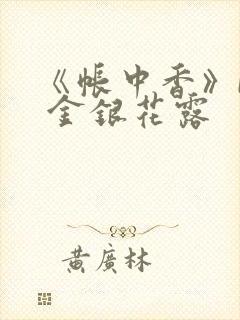 《帳中香》
金銀花露
黃廣林